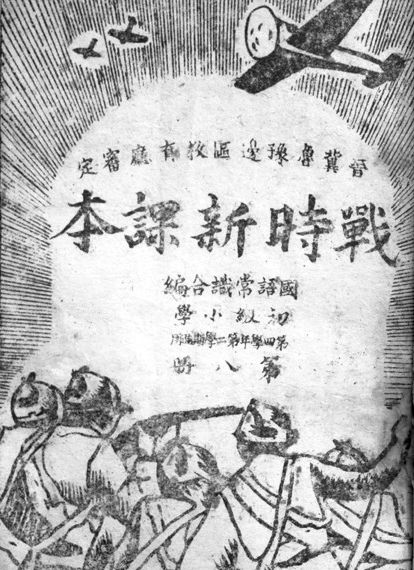 晉冀魯豫邊區教育廳審定
戰時新課本
國語常識合編
初級小學
第四學年第二學期用
第八册